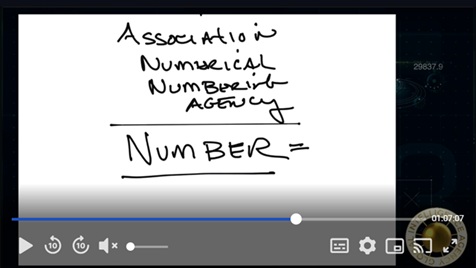 ASSOCIATION
NUMERICAL
NUMBERING
AGENCY
NUMBER =
29837.9
01:07:07
10
10